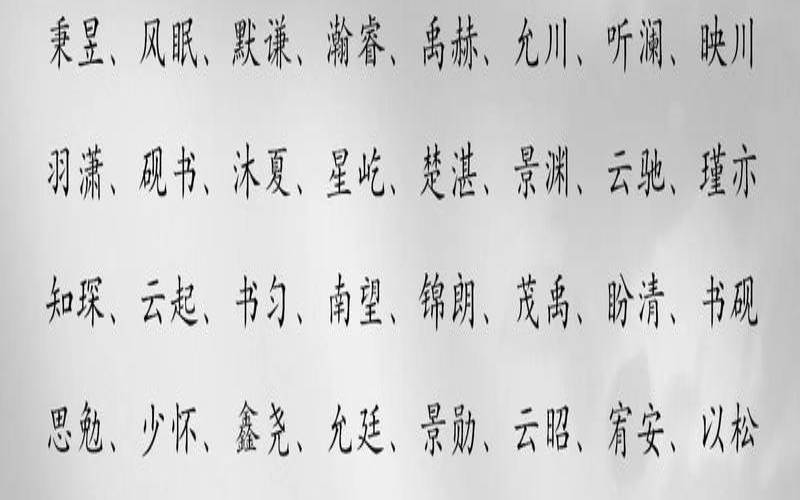 秉昱、风眠、默谦、瀚睿、禹赫、允川、听澜、映川
羽潇、砚书、沐夏、星屹、楚湛、景渊、云驰、瑾亦
知琛、云起、书匀、南望、锦朗、茂禹、盼清、书砚
思勉、少怀、鑫尧、允廷、景勋、云昭、宥安、以松